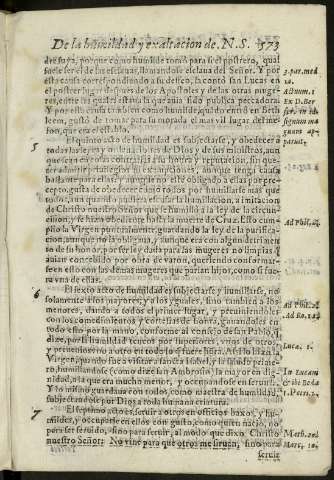 De la humildad y exaltacion de N. S. 573
dre suya, porque como humilde tomó para si el postrero, qual
fue ser el de su esclaua, llamandose esclaua del Señor. Y por
esta causa correspondiendo a su desseo, la contó san Lucas en
el postrer lugar despues de los Apostoles y de las otras muge-
res, entre las quales estaua la que auia sido publica peccadora.
Y por esta causa tambien como humilde, quando entró en Beth
leem, gustó de tomar para su morada el mas vil lugar del me-
son, que era el establo.
5 El quinto acto de humildad es subjectarse, y obedecer a
todas las leyes y ordenaciones de Dios y de sus ministros, aun
que sean en cosas contrarias a su honra y reputacion, sin que-
rer admitir
bastante para ello; y aunque no esté obligado a ellas por pre-
cepto, gusta de obedecer como todos por humillarse mas que
todos, aunque pudiera escusar la humillacion, a imitacion
de Christo nuestro Señor, que se humilló a la ley de la circun-
cision, y se hizo obediente hasta la muerte de Cruz. Esto cum-
plio la Virgen puntualmente, guardando la ley de la purifica-
cion, aunque no la obligaua, y aunque era con algun detrimen-
to de su honra, por ser ley dada para las mugeres no limpias, y
auian concebido por obra de varon, queriendo conformar-
se en esto con las demas mugeres que parian hijos, como si fue
ra vna de ellas.
6 El sexto acto de humildad es subjectarse y humillarse, no
solamente a los mayores, y a los yguales, sino tambien a los
menores, dando a todos el primer lugar, y preuiniendoles
con los comedimientos y cortesias de honra, ganandoles en
todo esto por la mano, conforme al consejo de san Pablo, que
dize, por la humildad teneos por superiores, vnos de otros,
y preueniendo a otro en todo lo que fuere honra. Assi lo hizo la
Virgen, quando fue a visitar a sancta Isabel, y la saludó prime-
ro, humillandose (como dize san Ambrosio) la mayor en dig-
nidad, a la que era mucho menor, y ocupandose en seruirla.
Y lo mismo guardaua con todos, como maestra de humildad,
subjectandose por Dios a toda humana criatura.
7 El septimo acto es, seruir a otros en officios baxos, y hu-
mildes, y occuparse en ellos con gusto, como quien nacio, no
para ser seruido, sino para seruir, al modo que dixo Christo
nuestro Señor: No vine para que otros me siruan, sino para
seruir
3. par. med
Actuum. 1
Ex D. Ber
Ad Phil. 2.
Ad Ro. 12.
Luca. 1.
In Lucam
1. Petri. 2.
Math. 20.
Marc. 10.